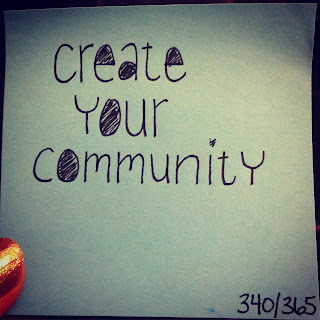 create
your
community
340/365